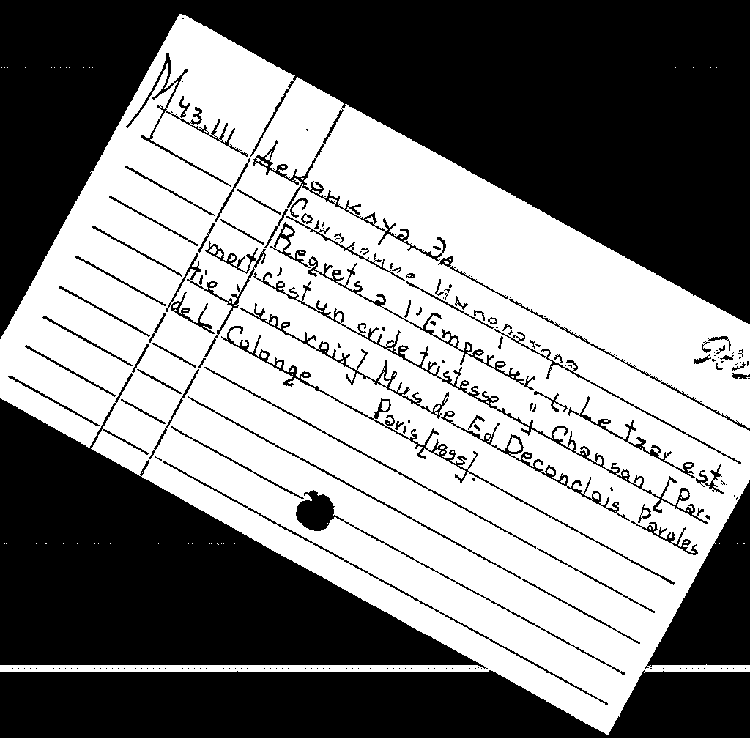 М 43.III
Деконклуа, Эд.
Сожаление Императора
Regrets a l'Empereur. „Le tzar est
mort! c'est un cri de tristesse..." Chanson. [Par-
tie à une voix]. Mus. de Ed. Deconclois. Paroles
de L. Colange.
Paris, [1895].